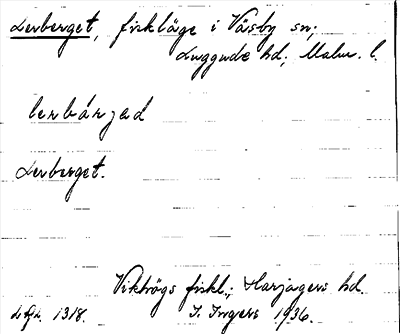 Lerberget, fiskläge i Väsby sn;
Luggude hd; Malm. l.
lerbárjad
Lerberget.
Vikhögs fiskl.; Harjagers hd.
1318. I. Ingers 1936.